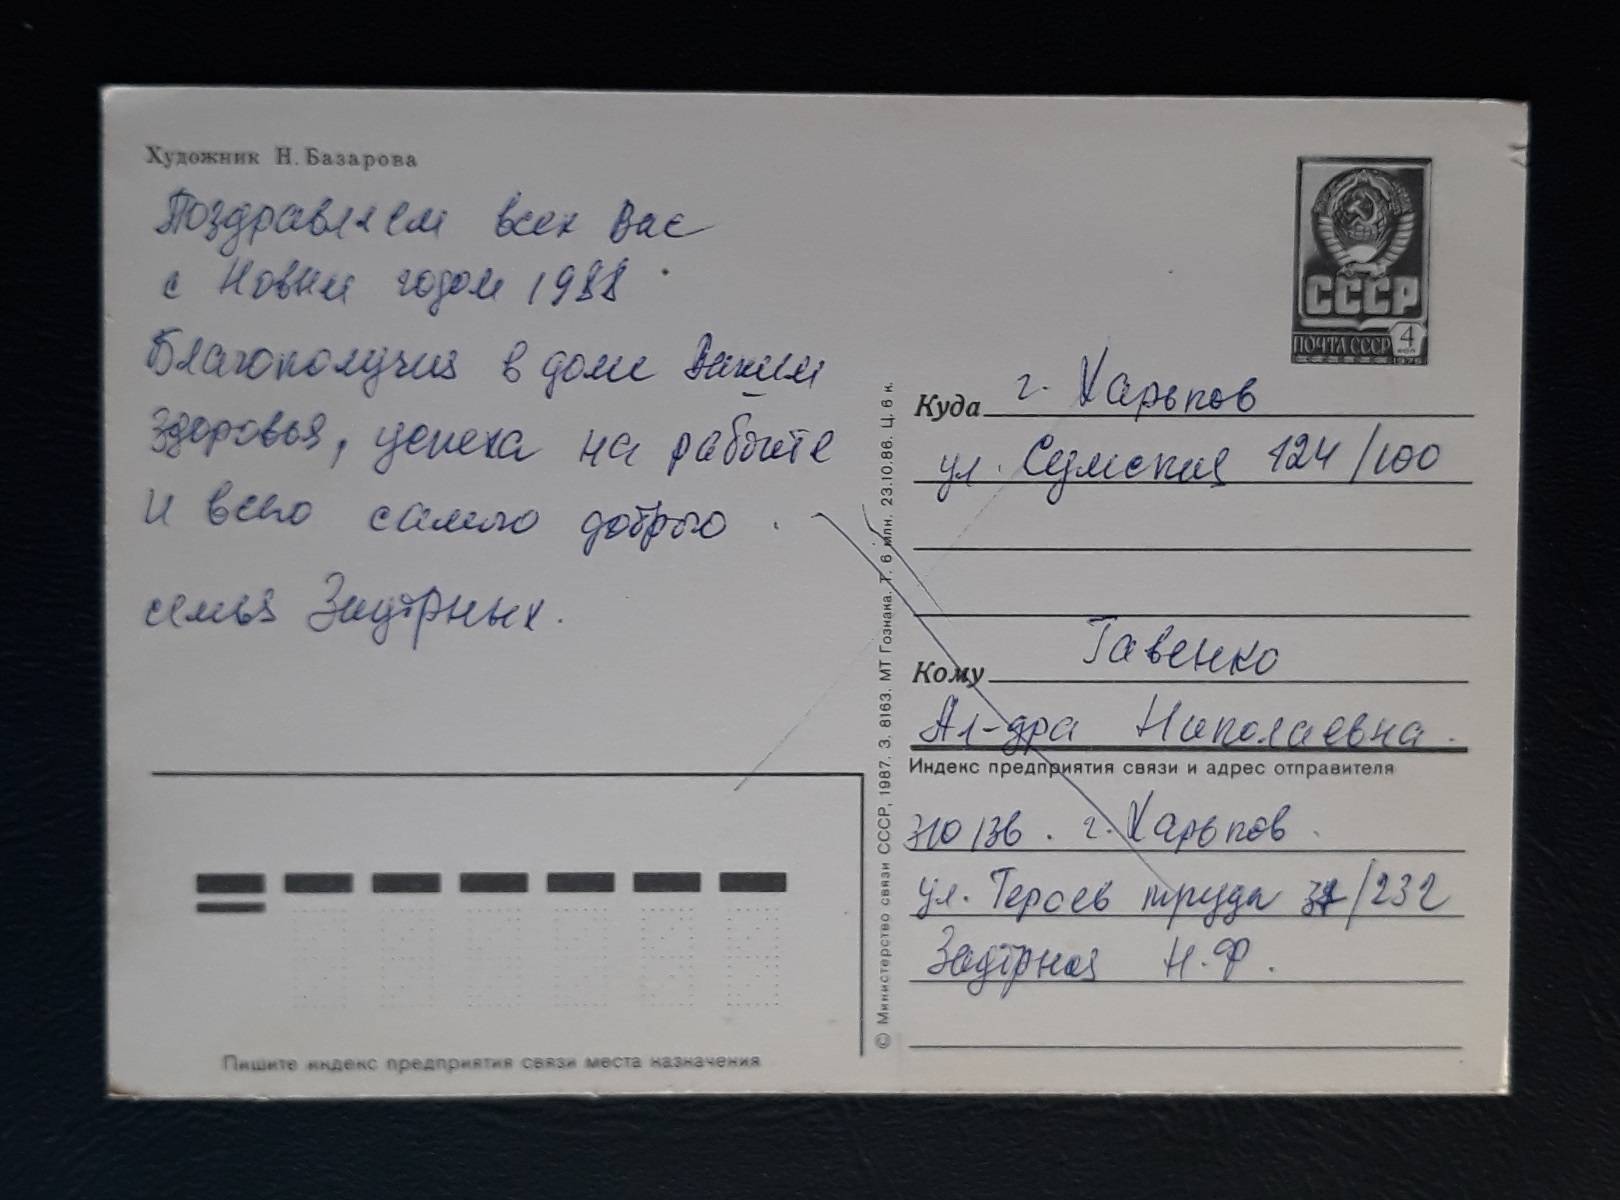 Художник Н. Базарова
Поздравляем всех Вас
с Новым годом 1988
Благополучия в доме Вашем
здоровья, успеха на работе
и всего самого доброго.
семья Заутрных.
СССР
ПОЧТА СССР 4 коп
1976
Куда г. Харьков
ул. Сумская 124/100
Кому Гавенко
Ал-дра Николаевна.
Индекс предприятия связи и адрес отправителя
310136. г. Харьков.
ул. Героев труда /232
Заутрная Н.Ф.
Пишите индекс предприятия связи места назначения
© Министерство связи СССР, 1987. З. 8163. МТ Гознака. Т. 6 млн. 23.10.86. Ц. 6 к.